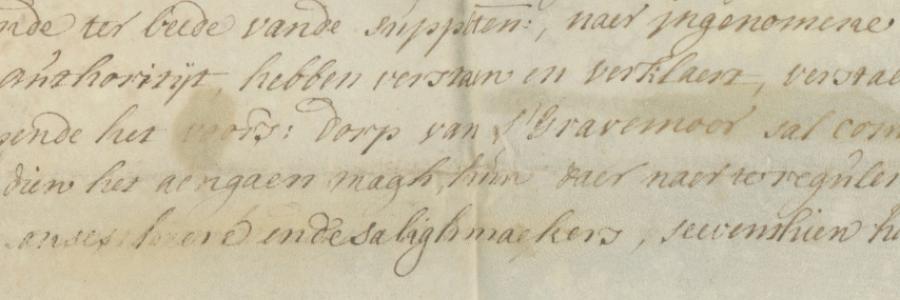 nde ter beede vande suppltten:, naer jngenomene
authoritijt, hebben verstaen en verklaert, verstae
gende het voors: dorp van s'Gravemoer sal com
dien het aengaen magh, hun daer naer te reguler
onses heere ende salighmaekers, seventhien h